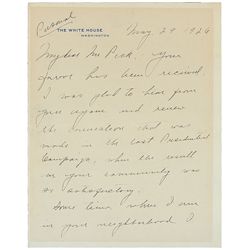 Personal
THE WHITE HOUSE
WASHINGTON
May 29 1926
My dear Mr
favor has been received.
I was glad to hear from
you again and renew
the association that was
made in the last Presidential
Campaign, when the result
in your community was
so satisfactory.
Some time when I am
in your neighborhood I